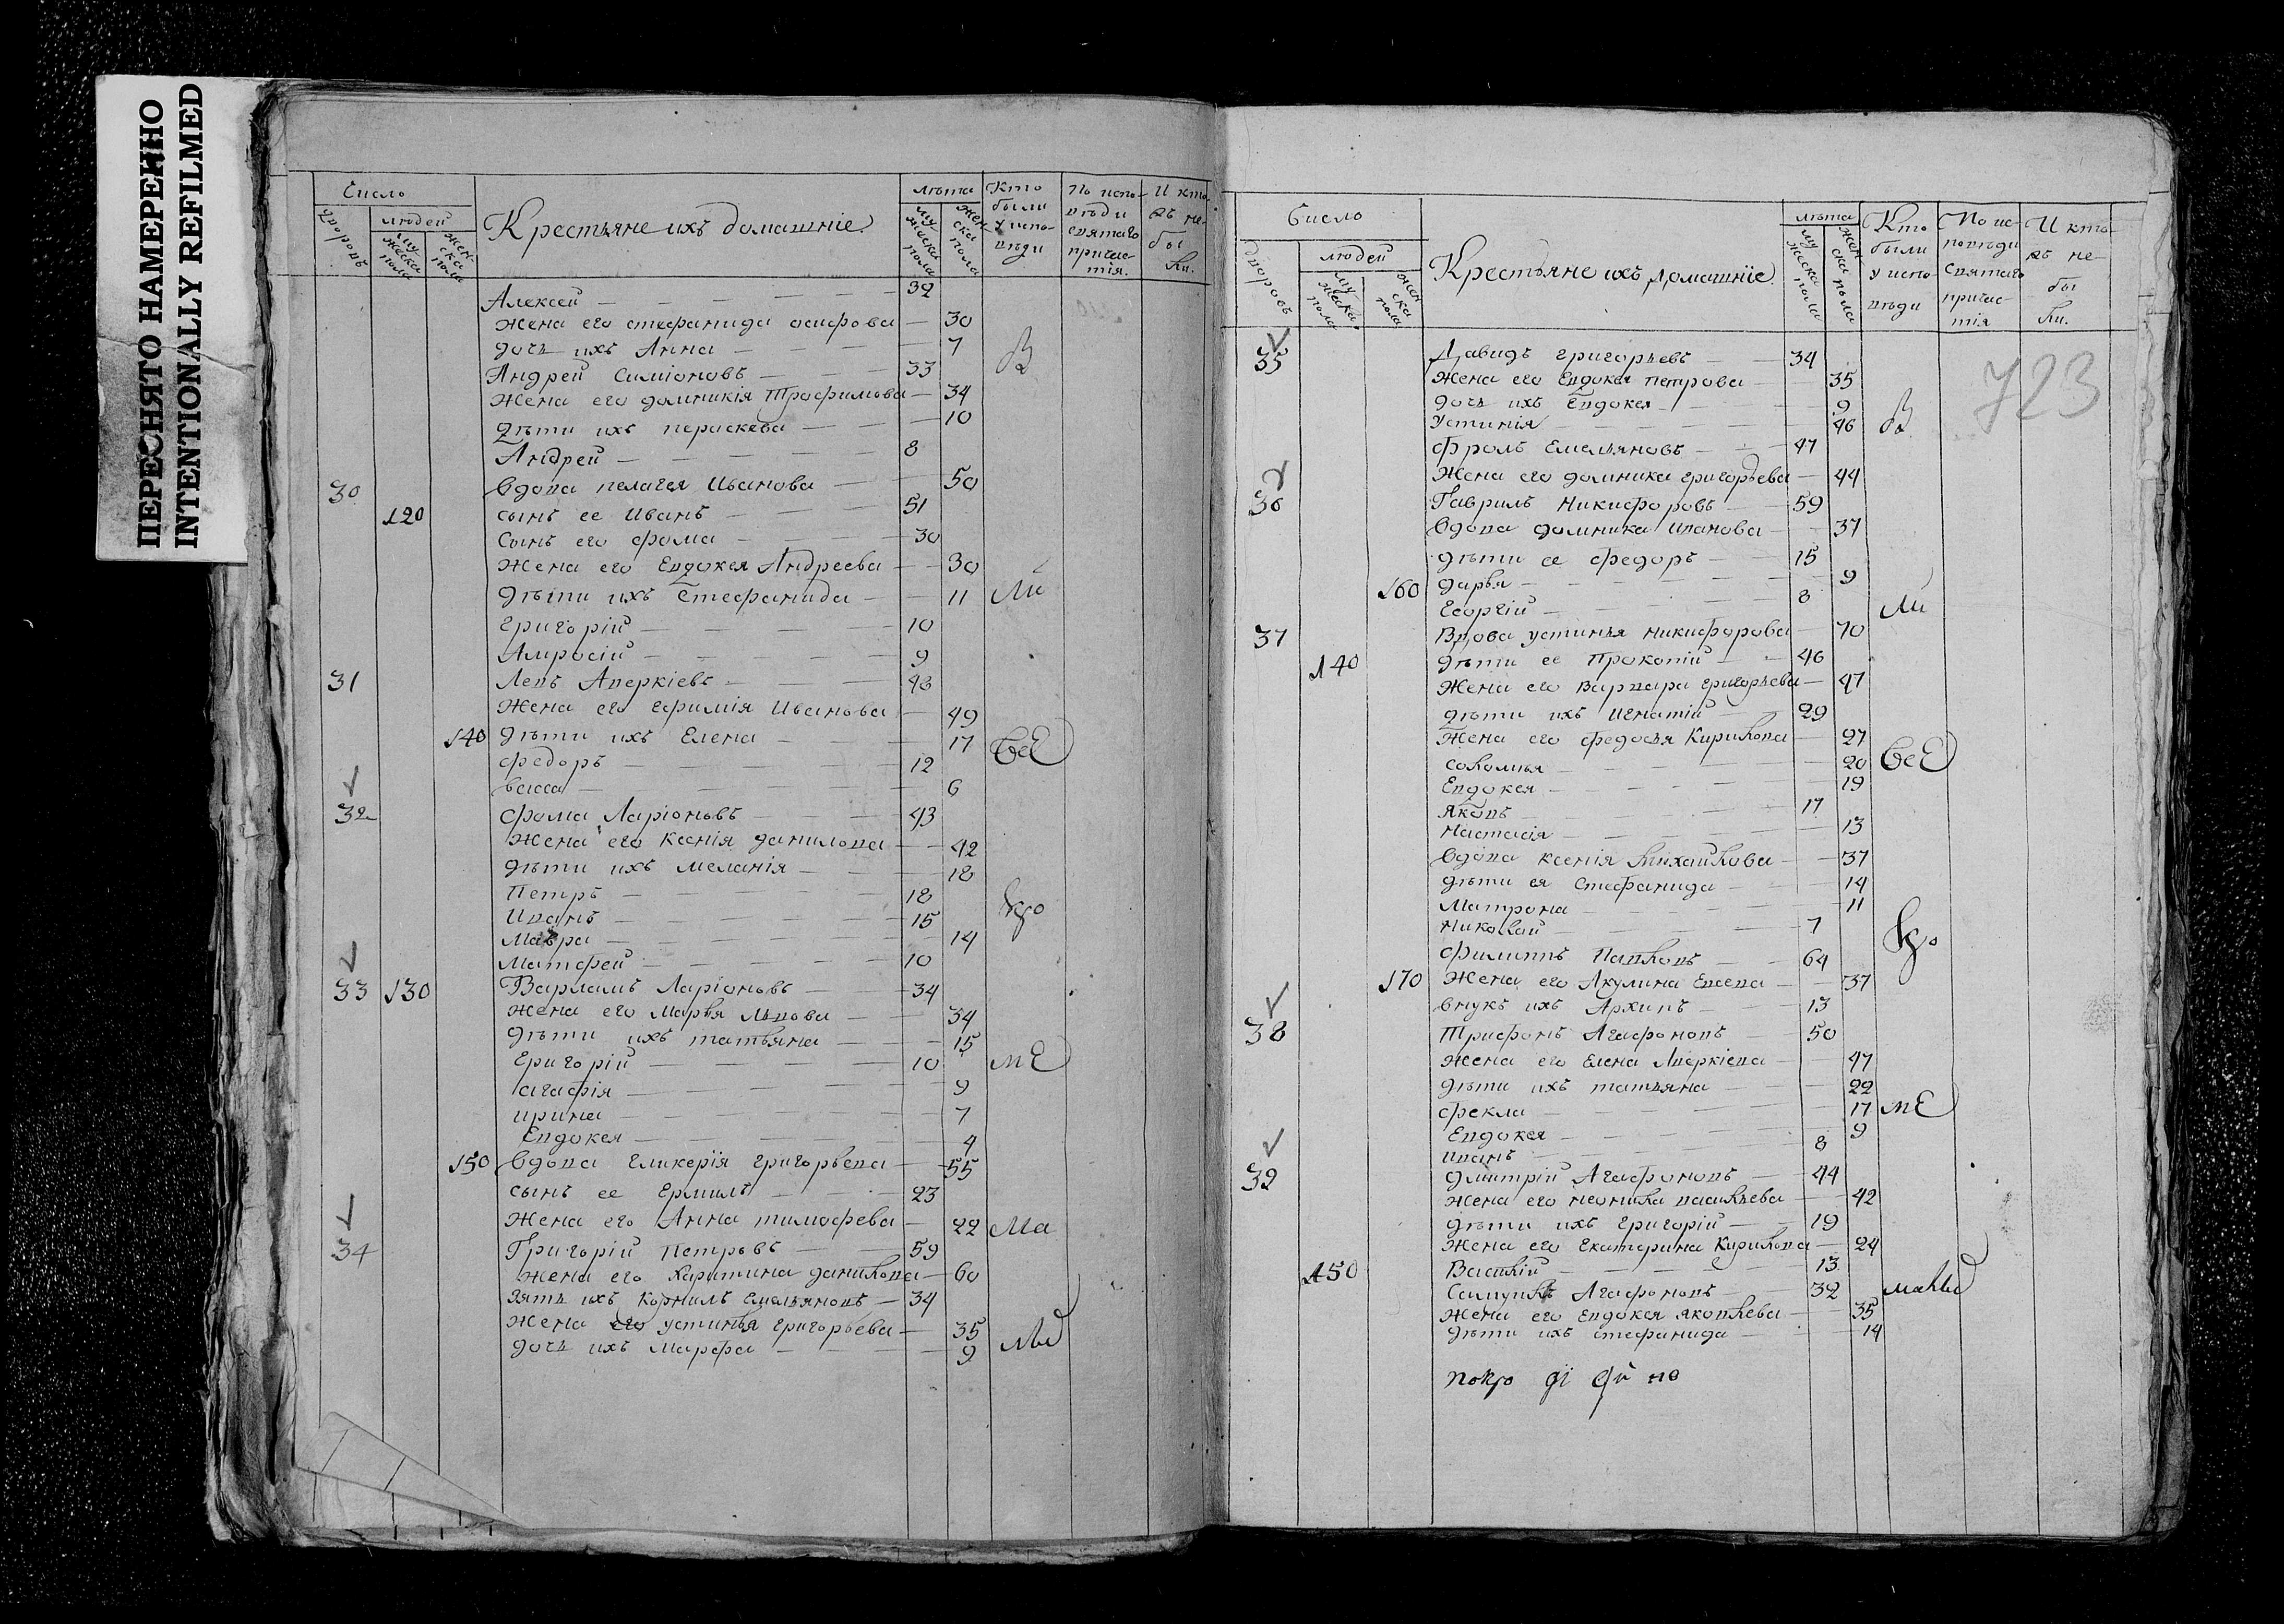 ПЕРЕСНЯТО НАМЕРЕННО
INTENTIONALLY REFILMED
Число
дворовъ
людей
мужеска пола
женска пола
Крестьяне ихъ домашніе
лѣта
мужеска пола
женска пола
Кто были у исповѣди
По исповѣди святаго причастія.
И кто въ не бы ли.
Алексей 32
Жена его стефанида осифова 30
дочь ихъ Анна 7
В
Андрей Симіоновъ 33
Жена его домникія Трофимова 34
дѣти ихъ параскева 10
Андрей 8
30 Вдова пелагея Иванова 50
120 сынъ ее Иванъ 51
Сынъ его фома 30
Жена его Евдокея Андреева 30
дѣти ихъ Стефанида 11 Ли
григорій 10
Амросій 9
31 Левъ Аверкіевъ 48
Жена его ефимія Иванова 49
140 дѣти ихъ Елена 17 всЕ
федоръ 12
васса 6
32 фома Ларіоновъ 43
Жена его Ксенія данилова 42
дѣти ихъ меланія 18
Петръ 18
Иванъ 15 кро
Мавра 14
Матфей 10
33 130 Варламъ Ларіоновъ 34
жена его Марья Львова 34
дѣти ихъ татьяна 15
Григорій 10 мЕ
агафія 9
ирина 7
Евдокея 4
150 Вдова гликерія григорьева 55
сынъ ее Ермилъ 23
Жена его Анна тимофева 22 Ма
34 Григорій Петровъ 59
жена его Харитина данилова 60
Зять ихъ Корнилъ Емельяновъ 34
Жена его устинья григорьева 35
дочь ихъ марфа 9 лы
Число
дворовъ
людей
мужеска пола
женска пола
Крестьяне ихъ домашніе
лѣта
мужеска пола
женска пола
Кто были у исповѣди
По исповѣди Святаго причастія
И кто въ не бы ли.
723
35 Давидъ григорьевъ 34
Жена его Евдокея петрова 35
дочь ихъ Евдокея 9
Устинія 46 В
фролъ Емельяновъ 47
Жена его домника григорьева 44
36 Гаврилъ Никифоровъ 59
Вдова домника иванова 37
дѣти ее федоръ 15
160 дарья 9
Георгій 8 Ли
37 Вдова устинья никифорова 70
140 дѣти ее Прокопій 46
Жена его Варвара григорьева 47
дѣти ихъ игнатій 29
Жена его федосья Кирилова 27
соломья 20 всЕ
Евдокея 19
Яковъ 17
настасія 13
Вдова ксенія михайлова 37
дѣти ея Стефанида 14
Матрона 11
николай 7 кро
филиппъ Павловъ 64
170 Жена его Акулина Евсева 37
внукъ ихъ Архипъ 13
38 Трифонъ Агафоновъ 50
Жена его Елена Аверкіева 47
дѣти ихъ татьяна 22
фекла 17 мЕ
Евдокея 9
иванъ 8
39 дмитрій Агафоновъ 44
жена его неонила васильева 42
дѣти ихъ григорій 19
Жена его Екатерина Кирилова 24
150 Василій 13
Самуилъ Агафоновъ 32 малы
Жена его Евдокея яковлева 35
дѣти ихъ стефанида 14
покро